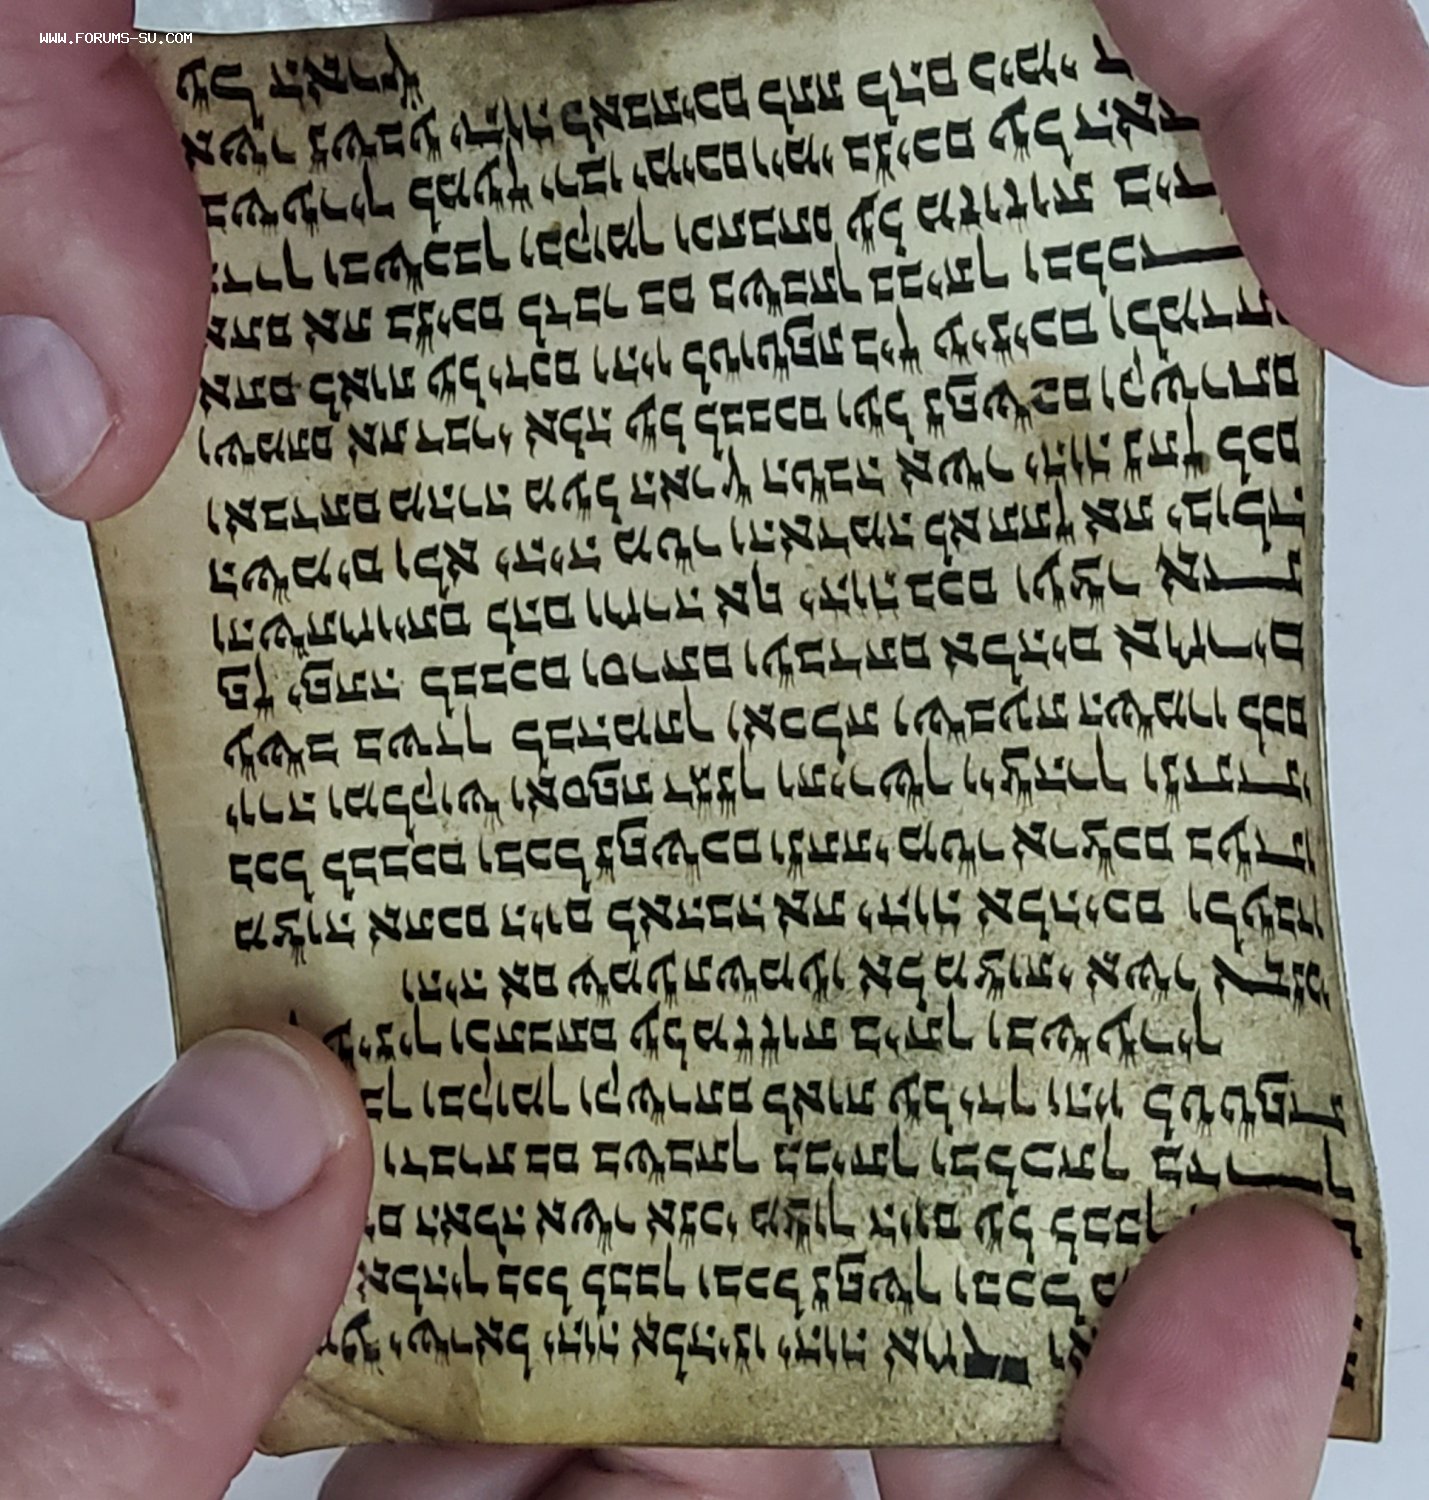 ישראל יהוה אלהינו יהוה אחד
אלהיך בכל לבבך ובכל נפשך ובכל
האלה אשר אנכי מצוך היום על לבבך
ודברת בם בשבתך בביתך ובלכתך בדרך
ובקומך וקשרתם לאות על ידך והיו לטטפת
עיניך וכתבתם על מזזות ביתך ובשעריך
והיה אם שמע תשמעו אל מצותי אשר אנכי
מצוה אתכם היום לאהבה את יהוה אלהיכם ולעבדו
בכל לבבכם ובכל נפשכם ונתתי מטר ארצכם בעתו
יורה ומלקוש ואספת דגנך ותירשך ויצהרך ונתתי
עשב בשדך לבהמתך ואכלת ושבעת השמרו לכם
פן יפתה לבבכם וסרתם ועבדתם אלהים אחרים
והשתחויתם להם וחרה אף יהוה בכם ועצר את
השמים ולא יהיה מטר והאדמה לא תתן את יבולה
ואבדתם מהרה מעל הארץ הטבה אשר יהוה נתן לכם
ושמתם את דברי אלה על לבבכם ועל נפשכם וקשרתם
אתם לאות על ידכם והיו לטוטפת בין עיניכם ולמדתם
אתם את בניכם לדבר בם בשבתך בביתך
ובשכבך ובקומך וכתבתם על מזוזות
בשעריך למען ירבו ימיכם וימי בניכם על
אשר נשבע יהוה לאבתיכם לתת להם כימי
על הארץ
WWW.FORUMS-SU.COM